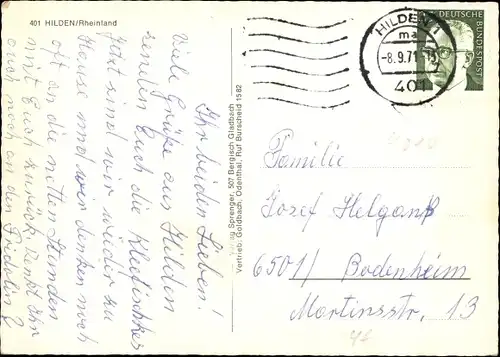 401 HILDEN/Rheinland
Ihr beiden Lieben!
Viele Grüße aus Hilden
senden Euch die
Jetzt sind wir wieder zu
Hause und wir denken noch
oft an die netten Stunden
mit Euch zurück. Denkt Ihr
auch noch an den Fridolin?
Verlag Sprenger, 507 Bergisch Gladbach
Vertrieb: Goldbach, Odenthal, Ruf Burscheid 1582
HILDEN 1
ma
-8.9.71
401
DEUTSCHE
BUNDESPOST
Familie
Josef
6501/ Bodenheim
Martinsstr. 13